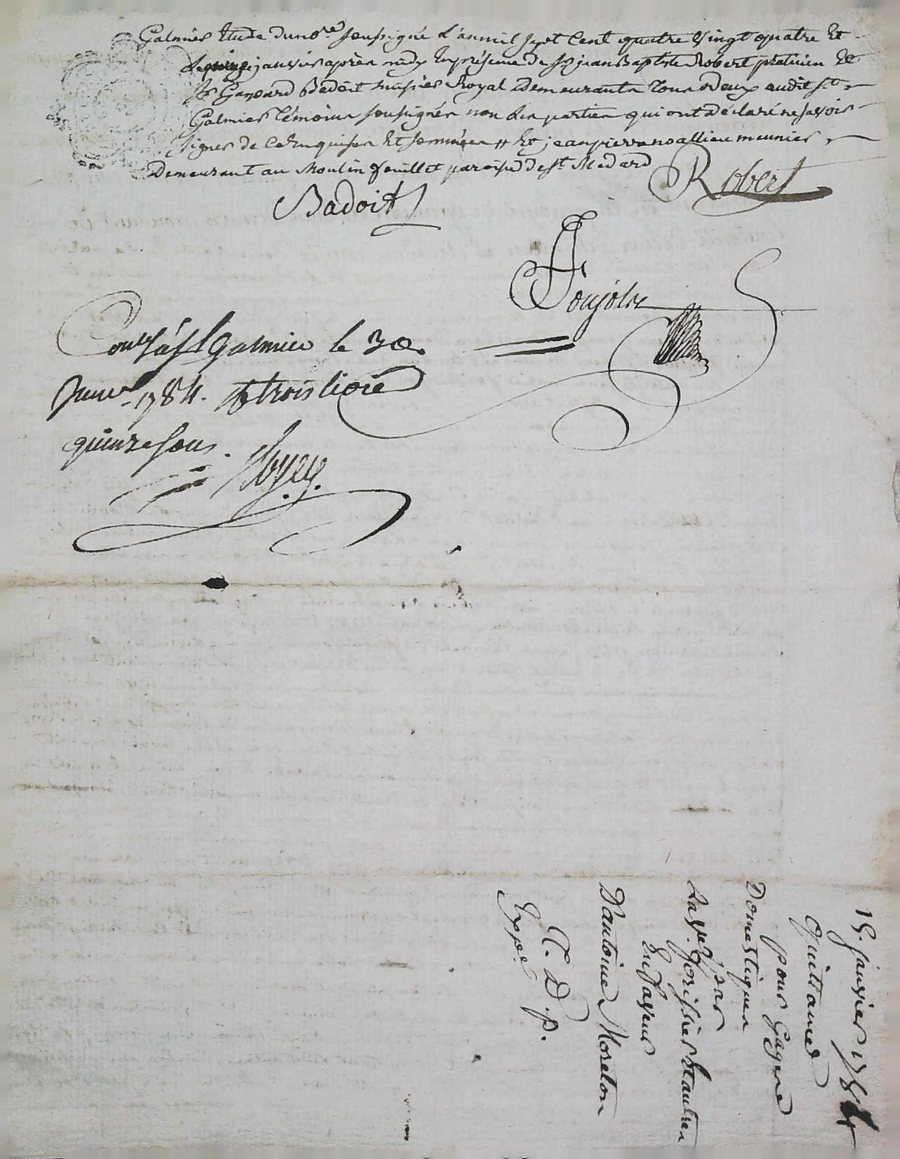 Galmier Etude du no.re soussigné L'an mil sept Cent quatre Vingt quatre Et
Le quinze janvier après midy En présence de S.r jean Baptiste Robert praticien Et
S.r Gaspard Bedoit huissier Royal demeurants Tous deux audit S.t
Galmier témoins soussignés non Les parties qui ont déclaré ne savoir
signer de ce Enquises Et Sommées # Et jean pierre noallieu meunier
Demeurant au Moulin fouillet paroisse de S.t Medard
Robert
Badoit
Poujols
Con.lé à S.t Galmier le 30
Janv.er 1784. R trois livre
quinze sous.
15 janvier 1784
Quittance
pour Gages
Domestiques
La v.e par
forissier et autres
En faveur
D'antoine Moreton
C. D. P.
Exp.é